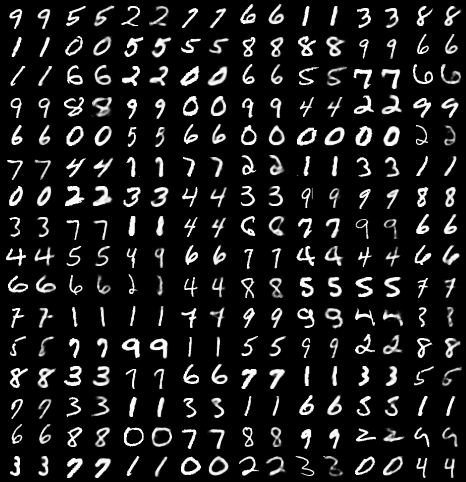 9 9 5 5 2 2 7 7 6 6 1 1 3 3 8 8
1 1 0 0 5 5 5 5 8 8 8 8 9 9 6 6
1 1 6 6 2 2 0 0 6 6 5 5 7 7 6 6
9 9 8 8 9 9 0 0 9 9 4 4 2 2 9 9
6 6 0 0 5 5 6 6 0 0 0 0 0 0 2 2
7 7 4 4 1 1 7 7 2 2 1 1 3 3 1 1
0 0 2 2 3 3 4 4 3 3 9 9 9 9 8 8
3 3 7 7 1 1 4 4 6 6 7 7 9 9 6 6
4 4 5 5 9 9 6 6 7 7 4 4 4 4 6 6
6 6 6 6 2 4 4 8 8 5 5 5 5 7 7
7 7 1 1 1 1 7 7 9 9 9 9 4 4 3 3
5 5 7 7 9 9 1 1 5 5 9 9 2 2 8 8
8 8 3 3 7 7 6 6 7 7 1 1 3 3 5 5
7 7 3 3 1 1 3 3 1 1 6 6 5 5 1 1
6 6 8 8 0 0 7 7 8 8 9 9 2 2 9 9
3 3 7 7 1 1 0 0 2 2 3 3 0 0 4 4